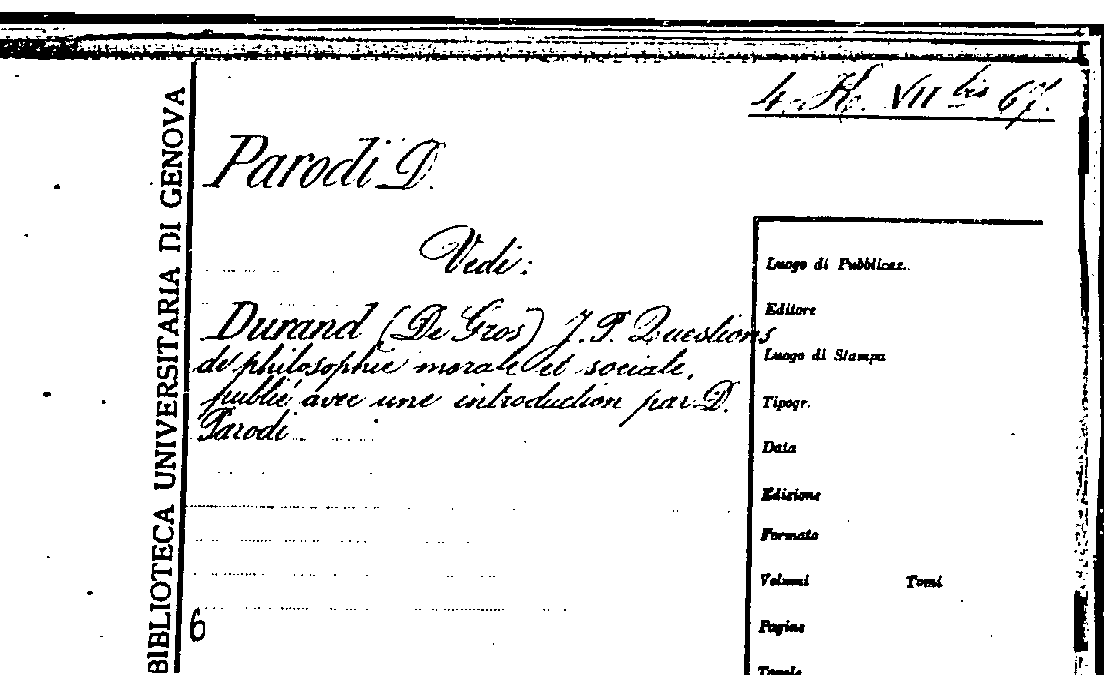 4. H. VII bis 67.
Parodi D.
Vedi:
Durand (De Gros) J. P. Questions
de philosophie morale et sociale,
publié avec une introduction par D.
Parodi
Luogo di Pubblicaz.
Editore
Luogo di Stampa
Tipogr.
Data
Edizione
Formato
Volumi Tomi
Pagine
Tavole
BIBLIOTECA UNIVERSITARIA DI GENOVA
6